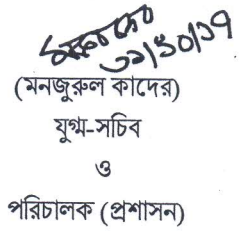 ৩১/১০/১৭
(মনজুরুল কাদের)
যুগ্ম-সচিব
ও
পরিচালক (প্রশাসন)